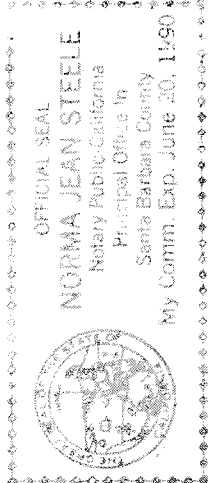 OFFICIAL SEAL
NORMA JEAN STEELE
Notary Public-California
Principal Office In
Santa Barbara County
My Comm. Exp. June 20, 1990